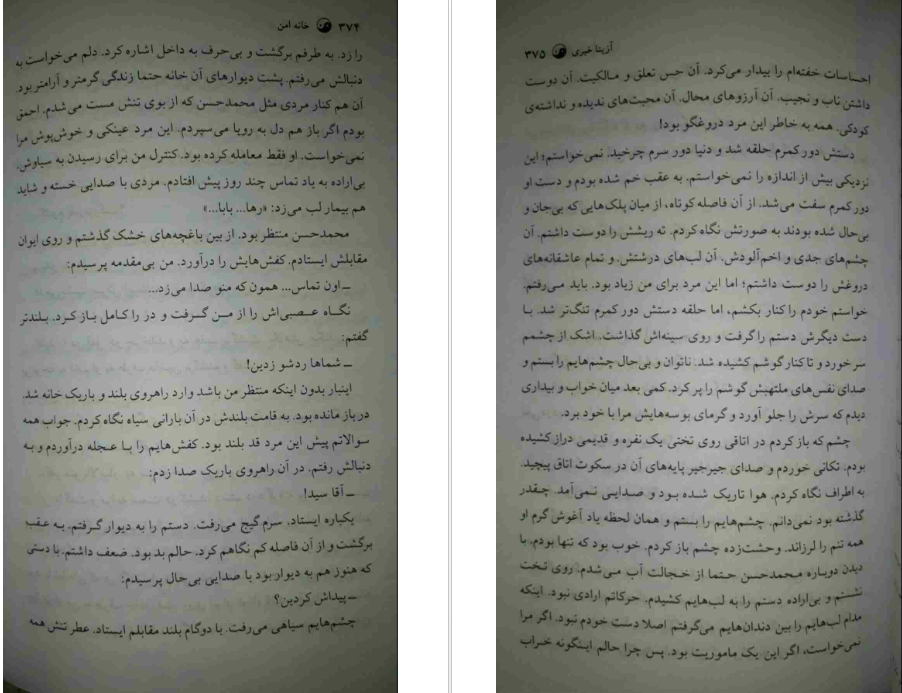 ۳۷۴ خانه امن
را زد. به طرفم برگشت و بی‌حرف به داخل اشاره کرد. دلم می‌خواست به
دنبالش می‌رفتم. پشت دیوارهای آن خانه حتما زندگی گرمتر و آرامتر بود.
آن هم کنار مردی مثل محمدحسن که از بوی تنش مست می‌شدم. احمق
بودم اگر باز هم دل به رویا می‌سپردم. این مرد عینکی و خوش‌پوش مرا
نمی‌خواست. او فقط معامله کرده بود. کنترل من برای رسیدن به سیاوش.
بی‌اراده به یاد تماس چند روز پیش افتادم. مردی با صدایی خسته و شاید
هم بیمار لب می‌زد: «رها... بابا...»
محمدحسن منتظر بود. از بین باغچه‌های خشک گذشتم و روی ایوان
مقابلش ایستادم. کفش‌هایش را درآورد. من بی‌مقدمه پرسیدم:
ـ اون تماس... همون که منو صدا می‌زد...
نگاه عصبی‌اش را از من گرفت و در را کامل باز کرد. بلندتر
گفتم:
ـ شماها ردشو زدین!
اینبار بدون اینکه منتظر من باشد وارد راهروی بلند و باریک خانه شد.
در باز مانده بود. به قامت بلندش در آن بارانی سیاه نگاه کردم. جواب همه
سوالاتم پیش این مرد قد بلند بود. کفش‌هایم را با عجله درآوردم و به
دنبالش رفتم. در آن راهروی باریک صدا زدم:
ـ آقا سید!
یکباره ایستاد. سرم گیج می‌رفت. دستم را به دیوار گرفتم. به عقب
برگشت و از آن فاصله کم نگاهم کرد. حالم بد بود. ضعف داشتم. با دستی
که هنوز هم به دیوار بود با صدایی بی‌حال پرسیدم:
ـ پیداش کردین؟
چشم‌هایم سیاهی می‌رفت. با دو گام بلند مقابلم ایستاد. عطر تنش همه
آزیتا خیری ۳۷۵
احساسات خفته‌ام را بیدار می‌کرد. آن حس تعلق و مالکیت. آن دوست
داشتن ناب و نجیب. آن آرزوهای محال. آن محبت‌های ندیده و نداشته‌ی
کودکی. همه به خاطر این مرد دروغگو بود!
دستش دور کمرم حلقه شد و دنیا دور سرم چرخید. نمی‌خواستم؛ این
نزدیکی بیش از اندازه را نمی‌خواستم. به عقب خم شده بودم و دست او
دور کمرم سفت می‌شد. از آن فاصله کوتاه، از میان پلک‌هایی که بی‌جان و
بی‌حال شده بودند به صورتش نگاه کردم. ته ریشش را دوست داشتم. آن
چشم‌های جدی و اخم‌آلودش. آن لب‌های درشتش. و تمام عاشقانه‌های
دروغش را دوست داشتم؛ اما این مرد برای من زیاد بود. باید می‌رفتم.
خواستم خودم را کنار بکشم، اما حلقه دستش دور کمرم تنگ‌تر شد. با
دست دیگرش دستم را گرفت و روی سینه‌اش گذاشت. اشک از چشمم
سر خورد و تا کنار گوشم کشیده شد. ناتوان و بی‌حال چشم‌هایم را بستم و
صدای نفس‌های ملتهبش گوشم را پر کرد. کمی بعد میان خواب و بیداری
دیدم که سرش را جلو آورد و گرمای بوسه‌هایش مرا با خود برد.
چشم که باز کردم در اتاقی روی تختی یک نفره و قدیمی دراز کشیده
بودم. تکانی خوردم و صدای جیرجیر پایه‌های آن در سکوت اتاق پیچید.
به اطراف نگاه کردم. هوا تاریک شده بود و صدایی نمی‌آمد. چقدر
گذشته بود نمی‌دانم. چشم‌هایم را بستم و همان لحظه یاد آغوش گرم او
همه تنم را لرزاند. وحشت‌زده چشم باز کردم. خوب بود که تنها بودم. با
دیدن دوباره محمدحسن حتما از خجالت آب می‌شدم. روی تخت
نشستم و بی‌اراده دستم را به لب‌هایم کشیدم. حرکاتم ارادی نبود. اینکه
مدام لب‌هایم را بین دندان‌هایم می‌گرفتم اصلا دست خودم نبود. اگر مرا
نمی‌خواست، اگر این یک ماموریت بود. پس چرا حالم اینگونه خراب